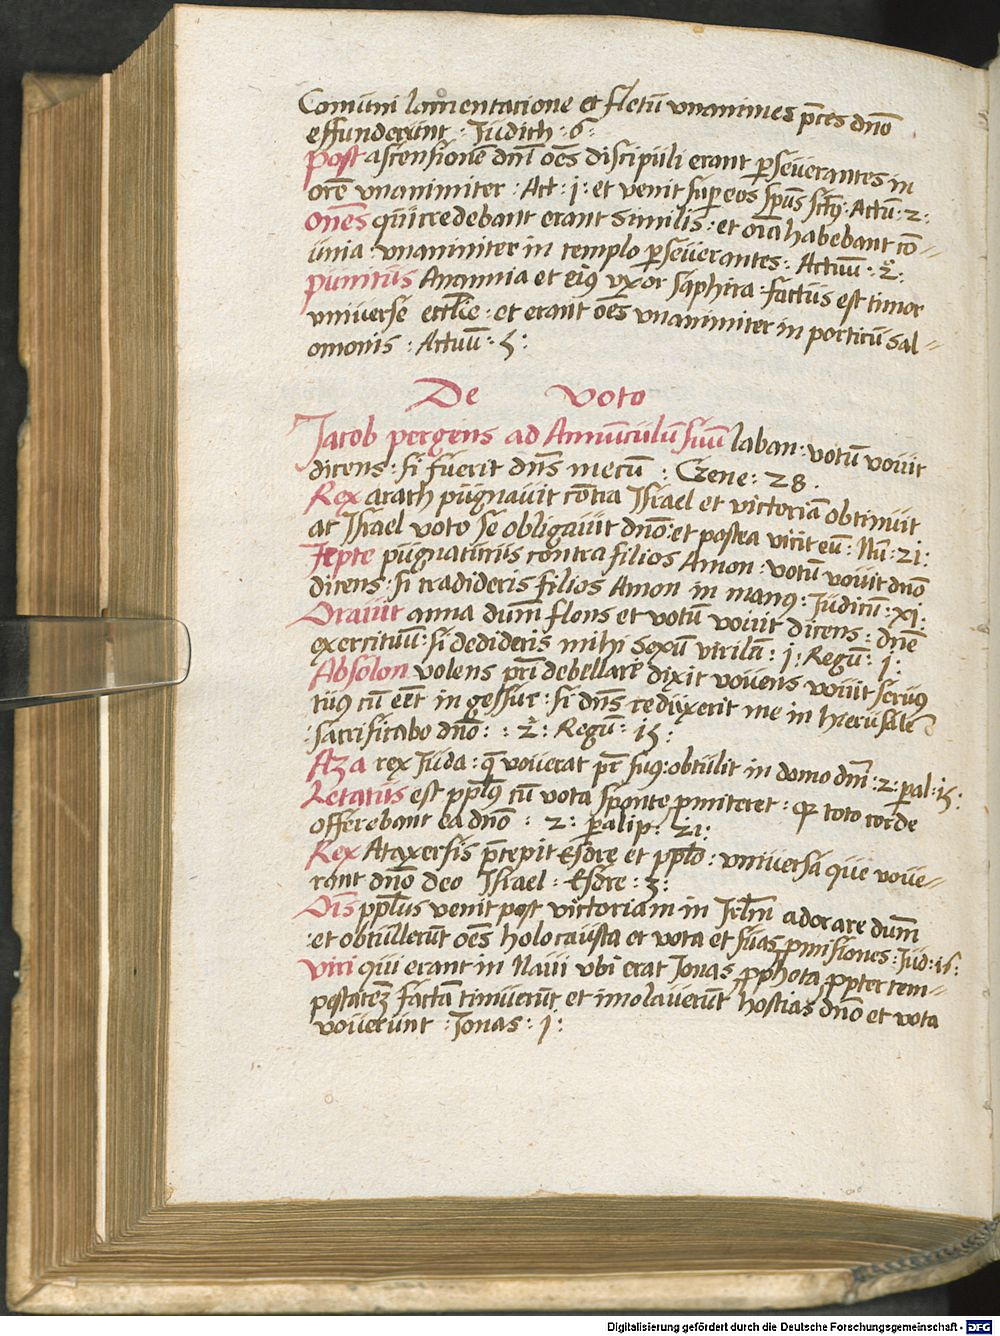 Comuni lamentacione et fletu vnanimes p̄ces dn̄o
effunderunt : Judith : 6 :
Post ascensionē dn̄i oēs discipuli erant ꝑseuerantes in
orōe vnanimiter : Act : j : et venit super eos sp̄us sc̄tꝰ : Actū : 2 :
Om̄es qui credebant erant similis : et oīa habebant cō-
unia : vnanimiter in templo ꝑseuerantes : Actuū : 2 :
Punitus Anannia et eiꝰ vxor saphira : factus est timor
vniuerse eccl̄ie : et erant oēs vnanimiter in porticu sal-
omonis : Actuū : 5 :
De voto
Jacob pergens ad Auunculū suū laban : votū vouit
dicens : si fuerit dn̄s mecū : Gene : 28 .
Rex arath pugnauit cōtra Israel et victoriā obtinuit
at Israel voto se obligauit dn̄o : et postea vicit eū : Nū : 21 :
Jepte pugnaturus contra filios Amon : votū vouit dn̄o
dicens : si tradideris filios Amon in manꝰ : Judicū : xj :
Orauit anna dum flens et votū vouit dicens : dn̄e
exercituū : si dederis mihi sexū virilē : j : Regū : j :
Absolon volens pr̄i debellare dixit vouens vouit seruꝰ
tuꝰ cū eēt in gessur : si dn̄s reduxerit me in hierusalē
sacrificabo dn̄o : : 2 : Regū : 15 :
Aza rex Juda : q̄ vouerat pr̄ suꝰ : obtulit in domo dn̄i : 2 : ꝑal : 15 :
Letatus est pp̄lꝰ cū vota sponte ꝓmiteret : qꝛ toto corde
offerebant ea dn̄o : 2 : ꝑalip : 21 :
Rex Ataxersis p̄cepit Esdre et pp̄lo : vniuersa que voue-
rant dn̄o deo Israel : Esdre : 3 :
Oīs pp̄lus venit post victoriam in Jrl̄m adorare dum̄
et obtullerūt oēs holocausta et vota et suas ꝓmisiones : Jud : 15 :
Viri qui erant in Naui vbi erat Jonas ꝓphota ꝓpter tem-
pestatē factā timuerūt et imolauerūt hostias dn̄o et vota
vouerunt : Jonas : j :
Digitalisierung gefördert durch die Deutsche Forschungsgemeinschaft - DFG